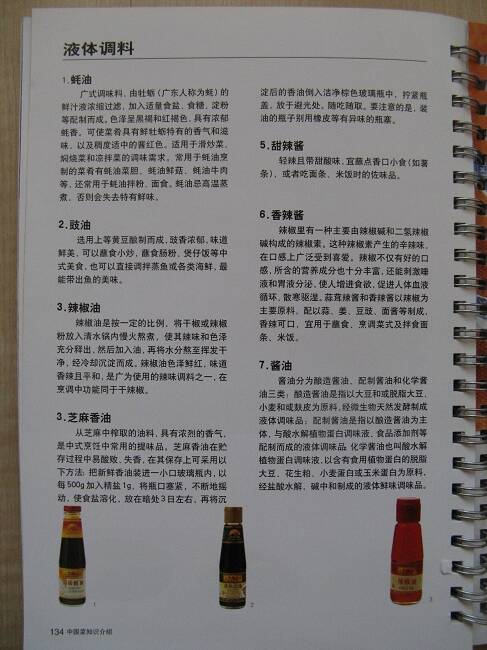 液体调料
1.蚝油
广式调味料，由牡蛎（广东人称为蚝）的
鲜汁液浓缩过滤，加入适量食盐、食糖、淀粉
等配制而成。色泽呈黑褐和红褐色，具有浓郁
蚝香。可使菜肴具有鲜牡蛎特有的香气和滋
味，以及稠度适中的酱红色。适用于滑炒菜、
焖烧菜和凉拌菜的调味需求。常用于蚝油烹
制的菜肴有蚝油菜胆、蚝油鲜菇、蚝油牛肉
等，还常用于蚝油拌粉、面食。蚝油忌高温蒸
煮，否则会失去特有鲜味。
2.豉油
选用上等黄豆酿制而成，豉香浓郁，味道
鲜美，可以蘸食小炒，蘸食肠粉，煲仔饭等中
式美食，也可以直接调拌蒸鱼或各类海鲜，最
能带出鱼的美味。
3.辣椒油
辣椒油是按一定的比例，将干椒或辣椒
粉放入清水锅内慢火熬煮，使其辣味和色泽
充分释出，然后加入油，再将水分熬至挥发干
净，经冷却沉淀而成。辣椒油色泽鲜红，味道
香辣且平和，是广为使用的辣味调料之一，在
烹调中功能同于干辣椒。
3.芝麻香油
从芝麻中榨取的油料，具有浓烈的香气，
是中式烹饪中常用的提味品。芝麻香油在贮
存过程中易酸败、失香，在其保存上可采用以
下方法：把新鲜香油装进一小口玻璃瓶内，以
每500g加入精盐1g，将瓶口塞紧，不断地摇
动，使食盐溶化，放在暗处3日左右，再将沉
淀后的香油倒入洁净棕色玻璃瓶中，拧紧瓶
盖，放于避光处，随吃随取。要注意的是，装
油的瓶子别用橡皮等有异味的瓶塞。
5.甜辣酱
轻辣且带甜酸味，宜蘸点香口小食（如薯
条），或者吃面条、米饭时的佐味品。
6.香辣酱
辣椒里有一种主要由辣椒碱和二氢辣椒
碱构成的辣椒素，这种辣椒素产生的辛辣味，
在口感上广泛受到喜爱。辣椒不仅有好的口
感，所含的营养成分也十分丰富，还能刺激唾
液和胃液分泌，使人增进食欲，促进人体血液
循环，散寒驱湿。蒜茸辣酱和香辣酱以辣椒为
主要原料，配以蒜、姜、豆豉、面酱等制成，
香辣可口，宜用于蘸食、烹调菜式及拌食面
条、米饭。
7.酱油
酱油分为酿造酱油、配制酱油和化学酱
油三类；酿造酱油是指以大豆和或脱脂大豆，
小麦和或麸皮为原料，经微生物天然发酵制成
液体调味品；配制酱油是指以酿造酱油为主
体，与酸水解植物蛋白调味液、食品添加剂等
配制而成的液体调味品；化学酱油也叫酸水解
植物蛋白调味液，以含有食用植物蛋白的脱脂
大豆、花生粕、小麦蛋白或玉米蛋白为原料，
经盐酸水解，碱中和制成的液体鲜味调味品。
1
2
3
134 中国菜知识介绍